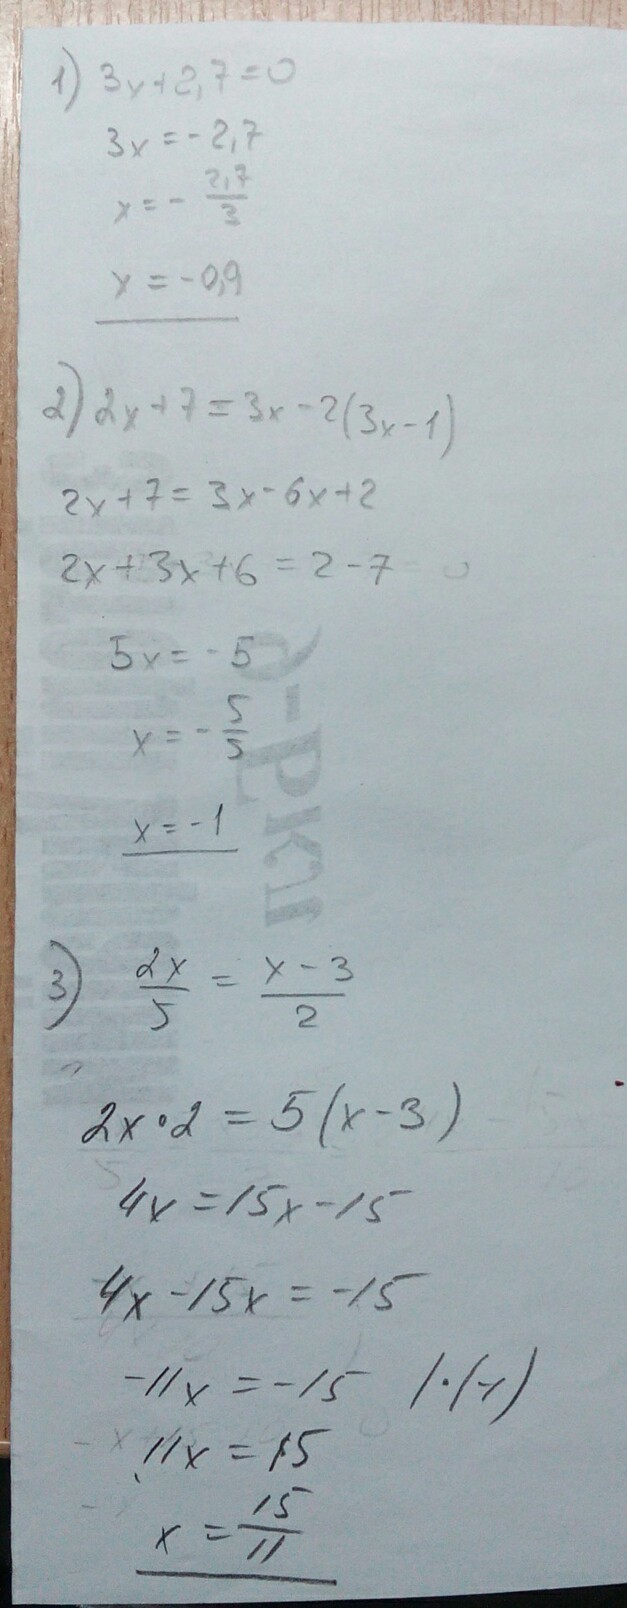 1) 3x+2,7=0
3x=-2,7
x=-2,7/3
x=-0,9
2) 2x+7=3x-2(3x-1)
2x+7=3x-6x+2
2x+3x+6=2-7
5x=-5
x=-5/5
x=-1
3) 2x/5=x-3/2
2x·2=5(x-3)
4x=15x-15
4x-15x=-15
-11x=-15 /·(-1)
11x=15
x=15/11